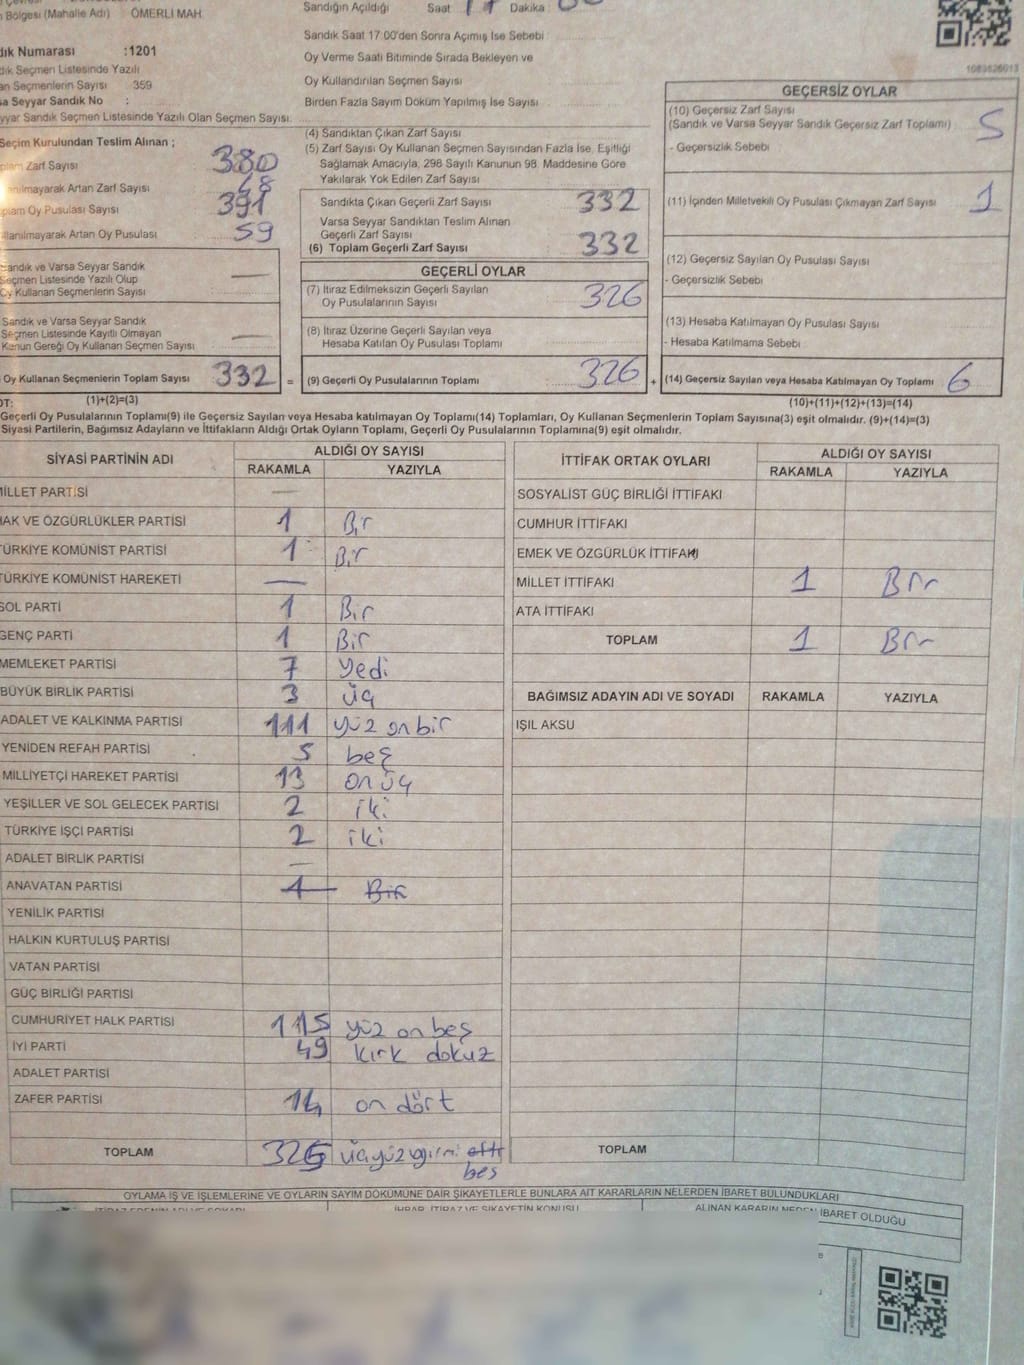 Bölgesi (Mahalle Adı) ÖMERLİ MAH.
Sandığın Açıldığı Saat 17 Dakika
Sandık Saat 17:00'den Sonra Açımış İse Sebebi
dık Numarası :1201
Oy Verme Saati Bitiminde Sırada Bekleyen ve
dık Seçmen Listesinde Yazılı
an Seçmenlerin Sayısı 359
Oy Kullandırılan Seçmen Sayısı
sa Seyyar Sandık No :
Birden Fazla Sayım Döküm Yapılmış İse Sayısı
yyar Sandık Seçmen Listesinde Yazılı Olan Seçmen Sayısı:
1083626013
Seçim Kurulundan Teslim Alınan ;
plam Zarf Sayısı 380
anılmayarak Artan Zarf Sayısı 48
plam Oy Pusulası Sayısı 391
llanılmayarak Artan Oy Pusulası 59
Sandık ve Varsa Seyyar Sandık
Seçmen Listesinde Yazılı Olup
Oy Kullanan Seçmenlerin Sayısı —
Sandık ve Varsa Seyyar Sandık
Seçmen Listesinde Kayıtlı Olmayan
Kanun Gereği Oy Kullanan Seçmen Sayısı —
Oy Kullanan Seçmenlerin Toplam Sayısı 332 =
(1)+(2)=(3)
(4) Sandıktan Çıkan Zarf Sayısı
(5) Zarf Sayısı Oy Kullanan Seçmen Sayısından Fazla İse, Eşitliği
Sağlamak Amacıyla, 298 Sayılı Kanunun 98. Maddesine Göre
Yakılarak Yok Edilen Zarf Sayısı
Sandıkta Çıkan Geçerli Zarf Sayısı 332
Varsa Seyyar Sandıktan Teslim Alınan
Geçerli Zarf Sayısı
(6) Toplam Geçerli Zarf Sayısı 332
GEÇERLİ OYLAR
(7) İtiraz Edilmeksizin Geçerli Sayılan
Oy Pusulalarının Sayısı 326
(8) İtiraz Üzerine Geçerli Sayılan veya
Hesaba Katılan Oy Pusulası Toplamı
(9) Geçerli Oy Pusulalarının Toplamı 326 +
GEÇERSİZ OYLAR
(10) Geçersiz Zarf Sayısı
(Sandık ve Varsa Seyyar Sandık Geçersiz Zarf Toplamı) 5
- Geçersizlik Sebebi
(11) İçinden Milletvekili Oy Pusulası Çıkmayan Zarf Sayısı 1
(12) Geçersiz Sayılan Oy Pusulası Sayısı
- Geçersizlik Sebebi
(13) Hesaba Katılmayan Oy Pusulası Sayısı
- Hesaba Katılmama Sebebi
(14) Geçersiz Sayılan veya Hesaba Katılmayan Oy Toplamı 6
(10)+(11)+(12)+(13)=(14)
Geçerli Oy Pusulalarının Toplamı(9) ile Geçersiz Sayılan veya Hesaba katılmayan Oy Toplamı(14) Toplamları, Oy Kullanan Seçmenlerin Toplam Sayısına(3) eşit olmalıdır. (9)+(14)=(3)
Siyasi Partilerin, Bağımsız Adayların ve İttifakların Aldığı Ortak Oyların Toplamı, Geçerli Oy Pusulalarının Toplamına(9) eşit olmalıdır.
SİYASİ PARTİNİN ADI ALDIĞI OY SAYISI
RAKAMLA YAZIYLA
MİLLET PARTİSİ —
HAK VE ÖZGÜRLÜKLER PARTİSİ 1 Bir
TÜRKİYE KOMÜNİST PARTİSİ 1 Bir
TÜRKİYE KOMÜNİST HAREKETİ —
SOL PARTİ 1 Bir
GENÇ PARTİ 1 Bir
MEMLEKET PARTİSİ 7 yedi
BÜYÜK BİRLİK PARTİSİ 3 üç
ADALET VE KALKINMA PARTİSİ 111 yüz on bir
YENİDEN REFAH PARTİSİ 5 beş
MİLLİYETÇİ HAREKET PARTİSİ 13 on üç
YEŞİLLER VE SOL GELECEK PARTİSİ 2 iki
TÜRKİYE İŞÇİ PARTİSİ 2 iki
ADALET BİRLİK PARTİSİ —
ANAVATAN PARTİSİ 1 Bir
YENİLİK PARTİSİ
HALKIN KURTULUŞ PARTİSİ
VATAN PARTİSİ
GÜÇ BİRLİĞİ PARTİSİ
CUMHURİYET HALK PARTİSİ 115 yüz on beş
İYİ PARTİ 49 kırk dokuz
ADALET PARTİSİ
ZAFER PARTİSİ 14 on dört
TOPLAM 325 üçyüzyirmi altı
beş
İTTİFAK ORTAK OYLARI ALDIĞI OY SAYISI
RAKAMLA YAZIYLA
SOSYALİST GÜÇ BİRLİĞİ İTTİFAKI
CUMHUR İTTİFAKI
EMEK VE ÖZGÜRLÜK İTTİFAKI
MİLLET İTTİFAKI 1 Bir
ATA İTTİFAKI
TOPLAM 1 Bir
BAĞIMSIZ ADAYIN ADI VE SOYADI RAKAMLA YAZIYLA
IŞIL AKSU
TOPLAM
OYLAMA İŞ VE İŞLEMLERİNE VE OYLARIN SAYIM DÖKÜMÜNE DAİR ŞİKAYETLERLE BUNLARA AİT KARARLARIN NELERDEN İBARET BULUNDUKLARI
İHBAR, İTİRAZ VE ŞİKAYETİN KONUSU ALINAN KARARIN NEDEN İBARET OLDUĞU